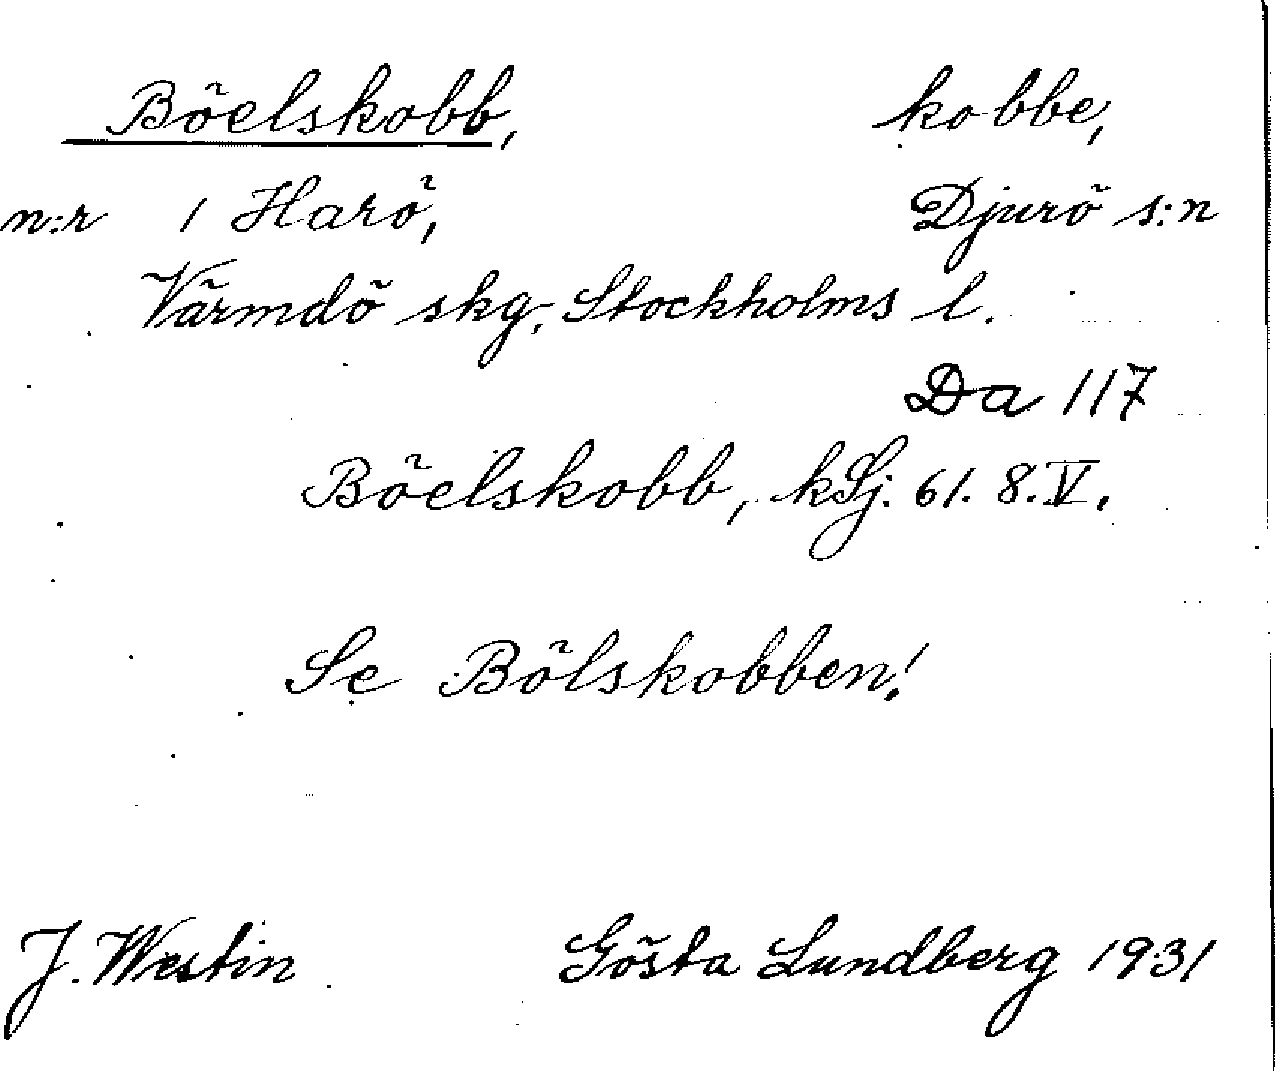 Böelskobb, kobbe,
n:r 1 Harö, Djurö s:n
Värmdö skg, Stockholms l.
Da 117
Böelskobb, kSj. 61. 8. V.
Se Bölskobben!
J. Westin Gösta Lundberg 1931